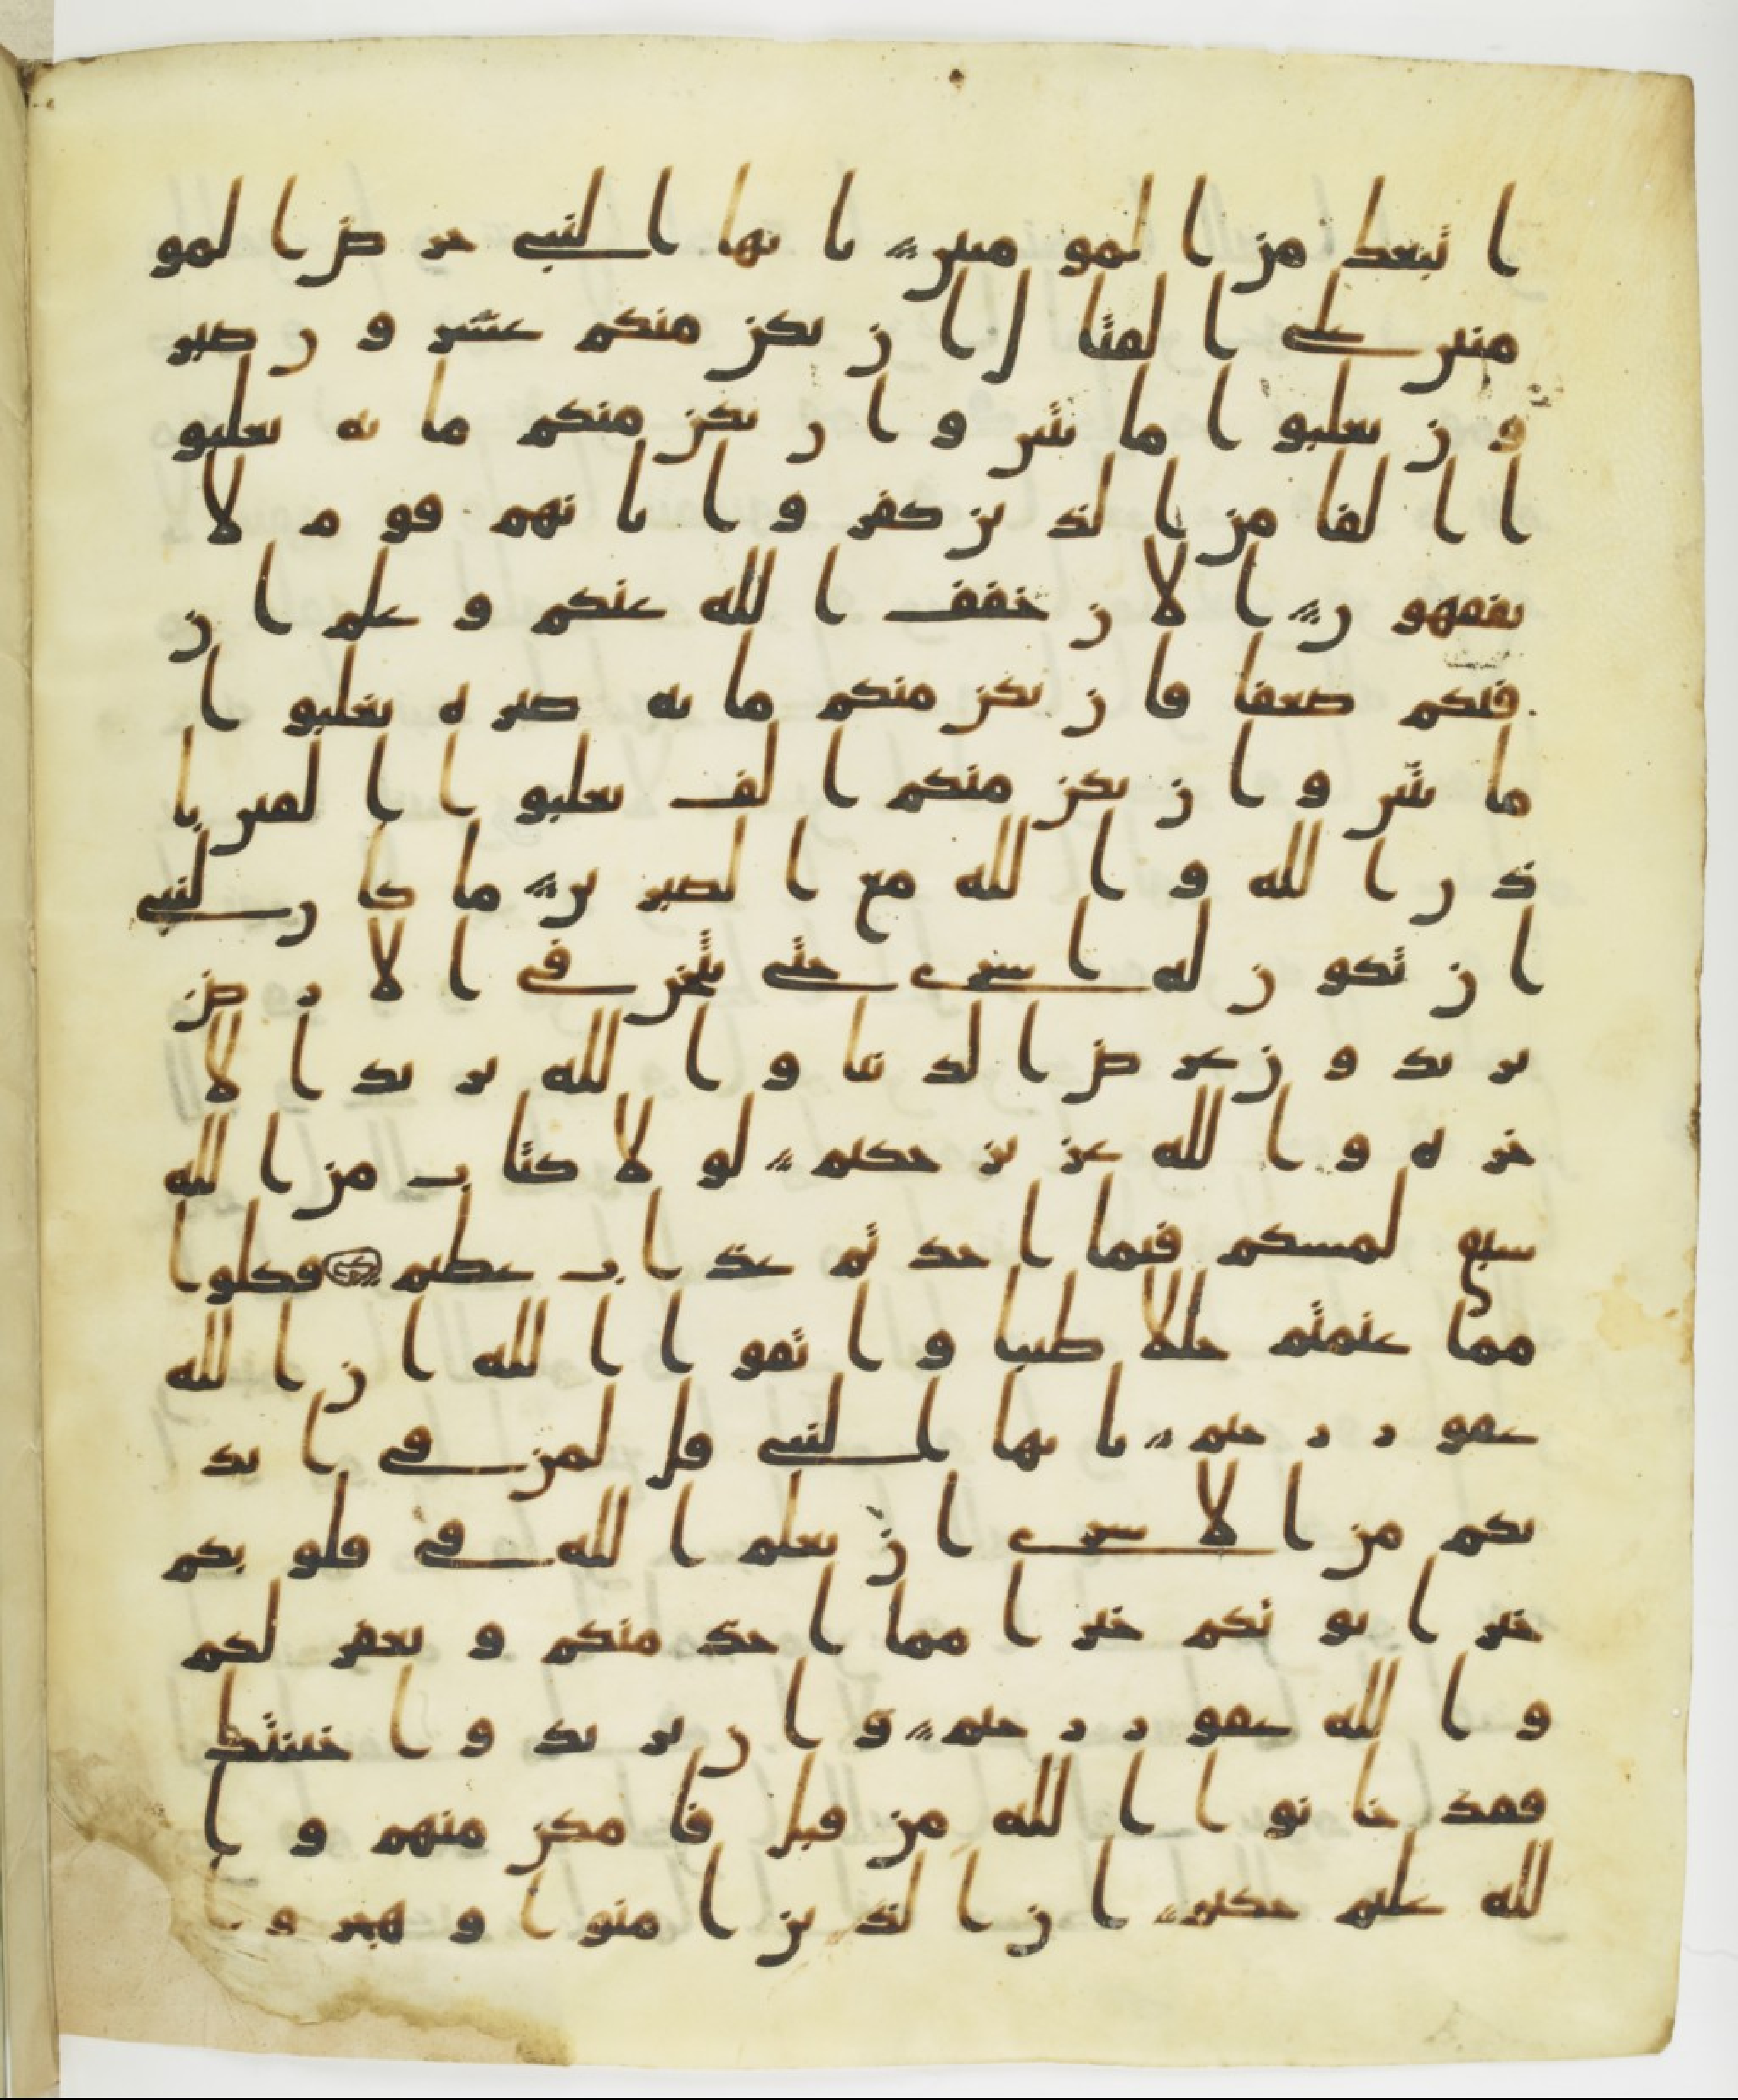 اتبعك من المومنين يايها النبي حرض المو
منين على القتال ان يكن منكم عشرون صبر
ون يغلبوا مايتين وان يكن منكم مايه يغلبو
ا الفا من الذين كفروا بانهم قوم لا
يفقهون الان خفف الله عنكم وعلم ان
فيكم ضعفا فان يكن منكم مايه صبره يغلبوا
مايتين وان يكن منكم الف يغلبوا الفين با
ذن الله والله مع الصبرين ما كان لنبي
ان تكون له اسرى حتى يثخن في الارض
يريدون عرض الدنيا والله يريد الا
خره والله عزيز حكيم لولا كتاب من الله
سبق لمسكم فيما اخذتم عذاب عظيم فكلوا
مما غنمتم حللا طيبا واتقوا الله ان الله
غفور رحيم يايها النبي قل لمن في ايد
يكم من الاسرى ان يعلم الله في قلوبكم
خيرا يوتكم خيرا مما اخذ منكم ويغفر لكم
والله غفور رحيم وان يريدوا خينتك
فقد خانوا الله من قبل فامكن منهم وا
لله عليم حكيم ان الذين امنوا وهجروا